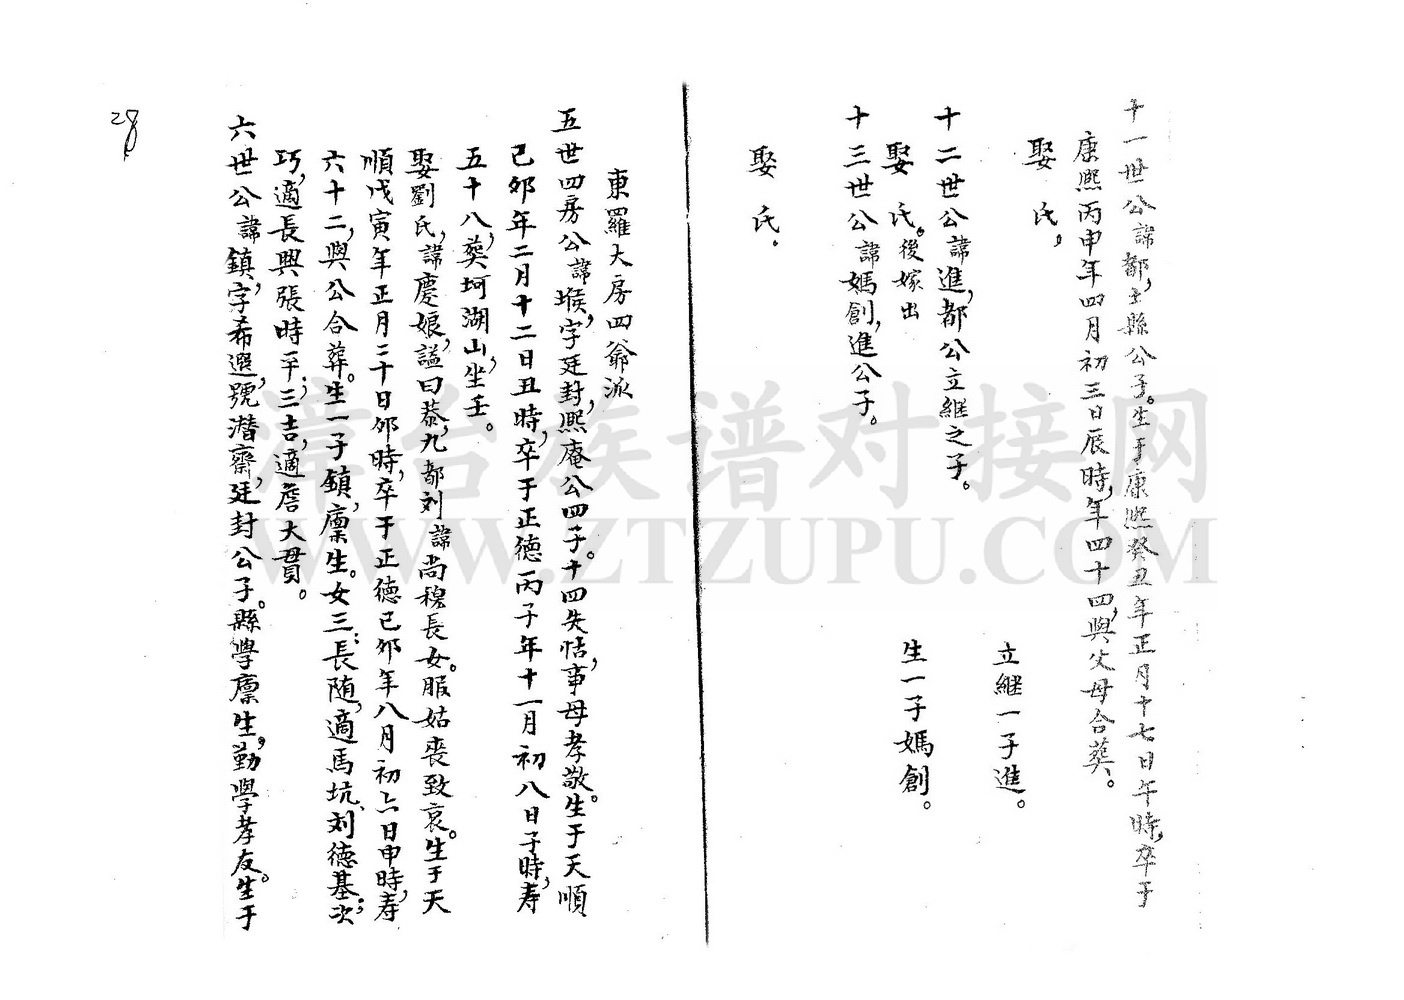 十一世公諱都,士縣公子。生于康熙癸丑年正月十七日午時,卒于
康熙丙申年四月初三日辰時,年四十四,與父母合葬。
娶 氏,
立継一子進。
十二世公諱進,都公立継之子。
娶 氏。後嫁出
生一子媽創。
十三世公諱媽創,進公子。
娶 氏。
東羅大房四爺派
五世四房公諱堠,字廷封,熙庵公四子。十四失怙,事母孝敬。生于天順
己卯年二月十二日丑時,卒于正德丙子年十一月初八日子時,寿
五十八,葬坷湖山,坐壬。
娶劉氏,諱慶娘,謚曰恭,九都刘諱尚穆長女。服姑喪致哀。生于天
順戊寅年正月二十日卯時,卒于正德己卯年八月初六日申時,寿
六十二,與公合葬。生一子鎮,廩生。女三:長随,適馬坑、刘德基;次
巧,適長興張時平;三吉,適詹大貫。
六世公諱鎮,字希選,號潜齋,廷封公子。縣學廩生,勤學孝友。生于
28
漳台族谱对接网
WWW.ZTZUPU.COM